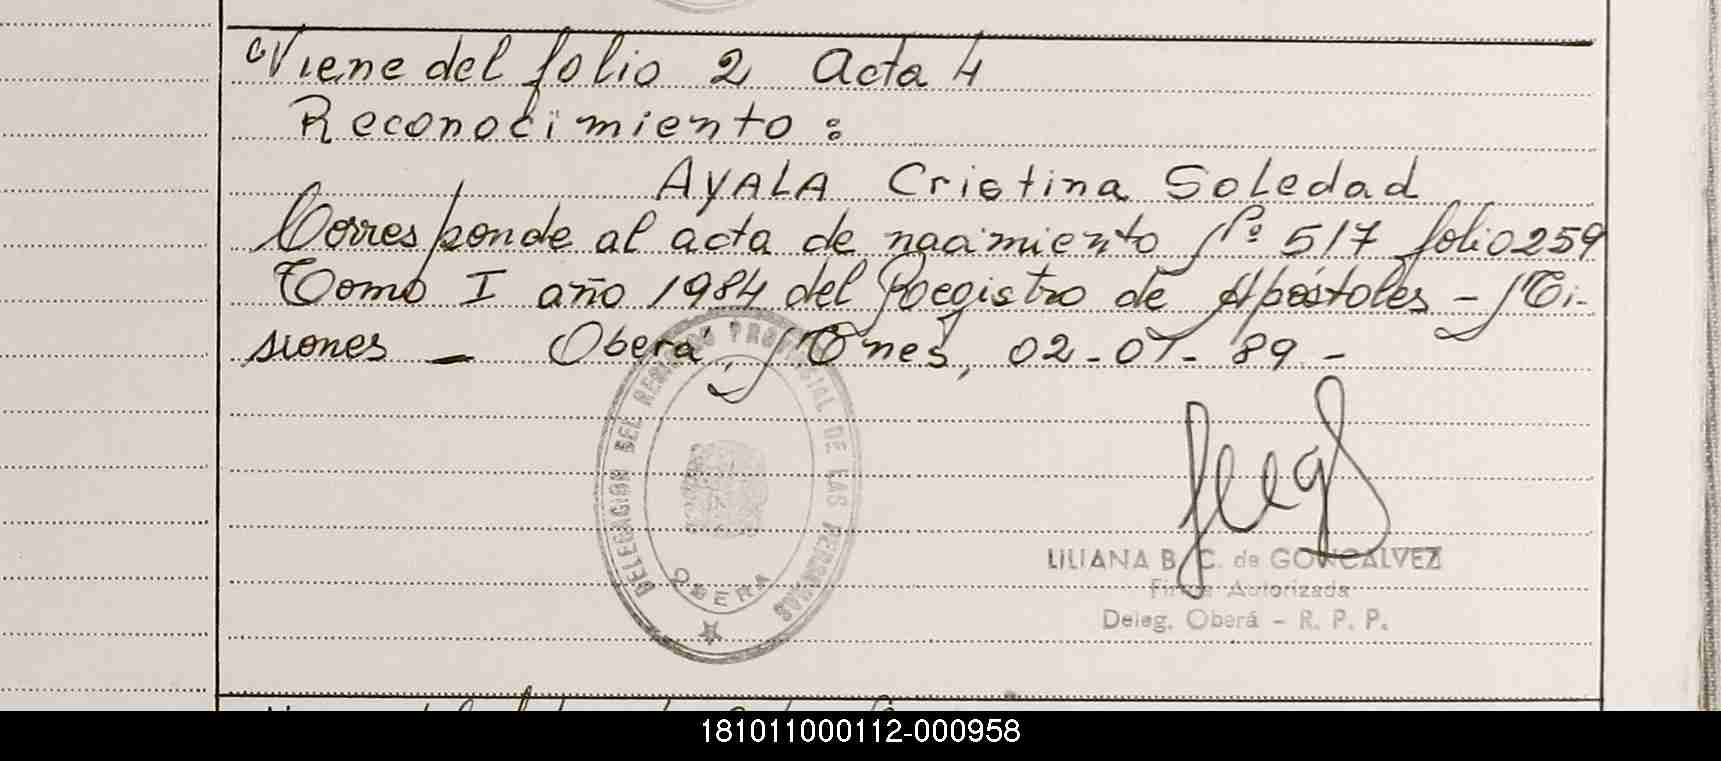 Viene del folio 2 Acta 4
Reconocimiento :
AYALA Cristina Soledad
Corresponde al acta de nacimiento Nº 517 folio 259
Tomo I año 1984 del Registro de Apóstoles - Mi-
siones - Oberá, Mnes, 02-07-89 -
DELEGACION DEL REGISTRO PROVINCIAL DE LAS PERSONAS
OBERA
LILIANA B. C. de GONCALVEZ
Firma Autorizada
Deleg. Oberá - R. P. P.
181011000112-000958